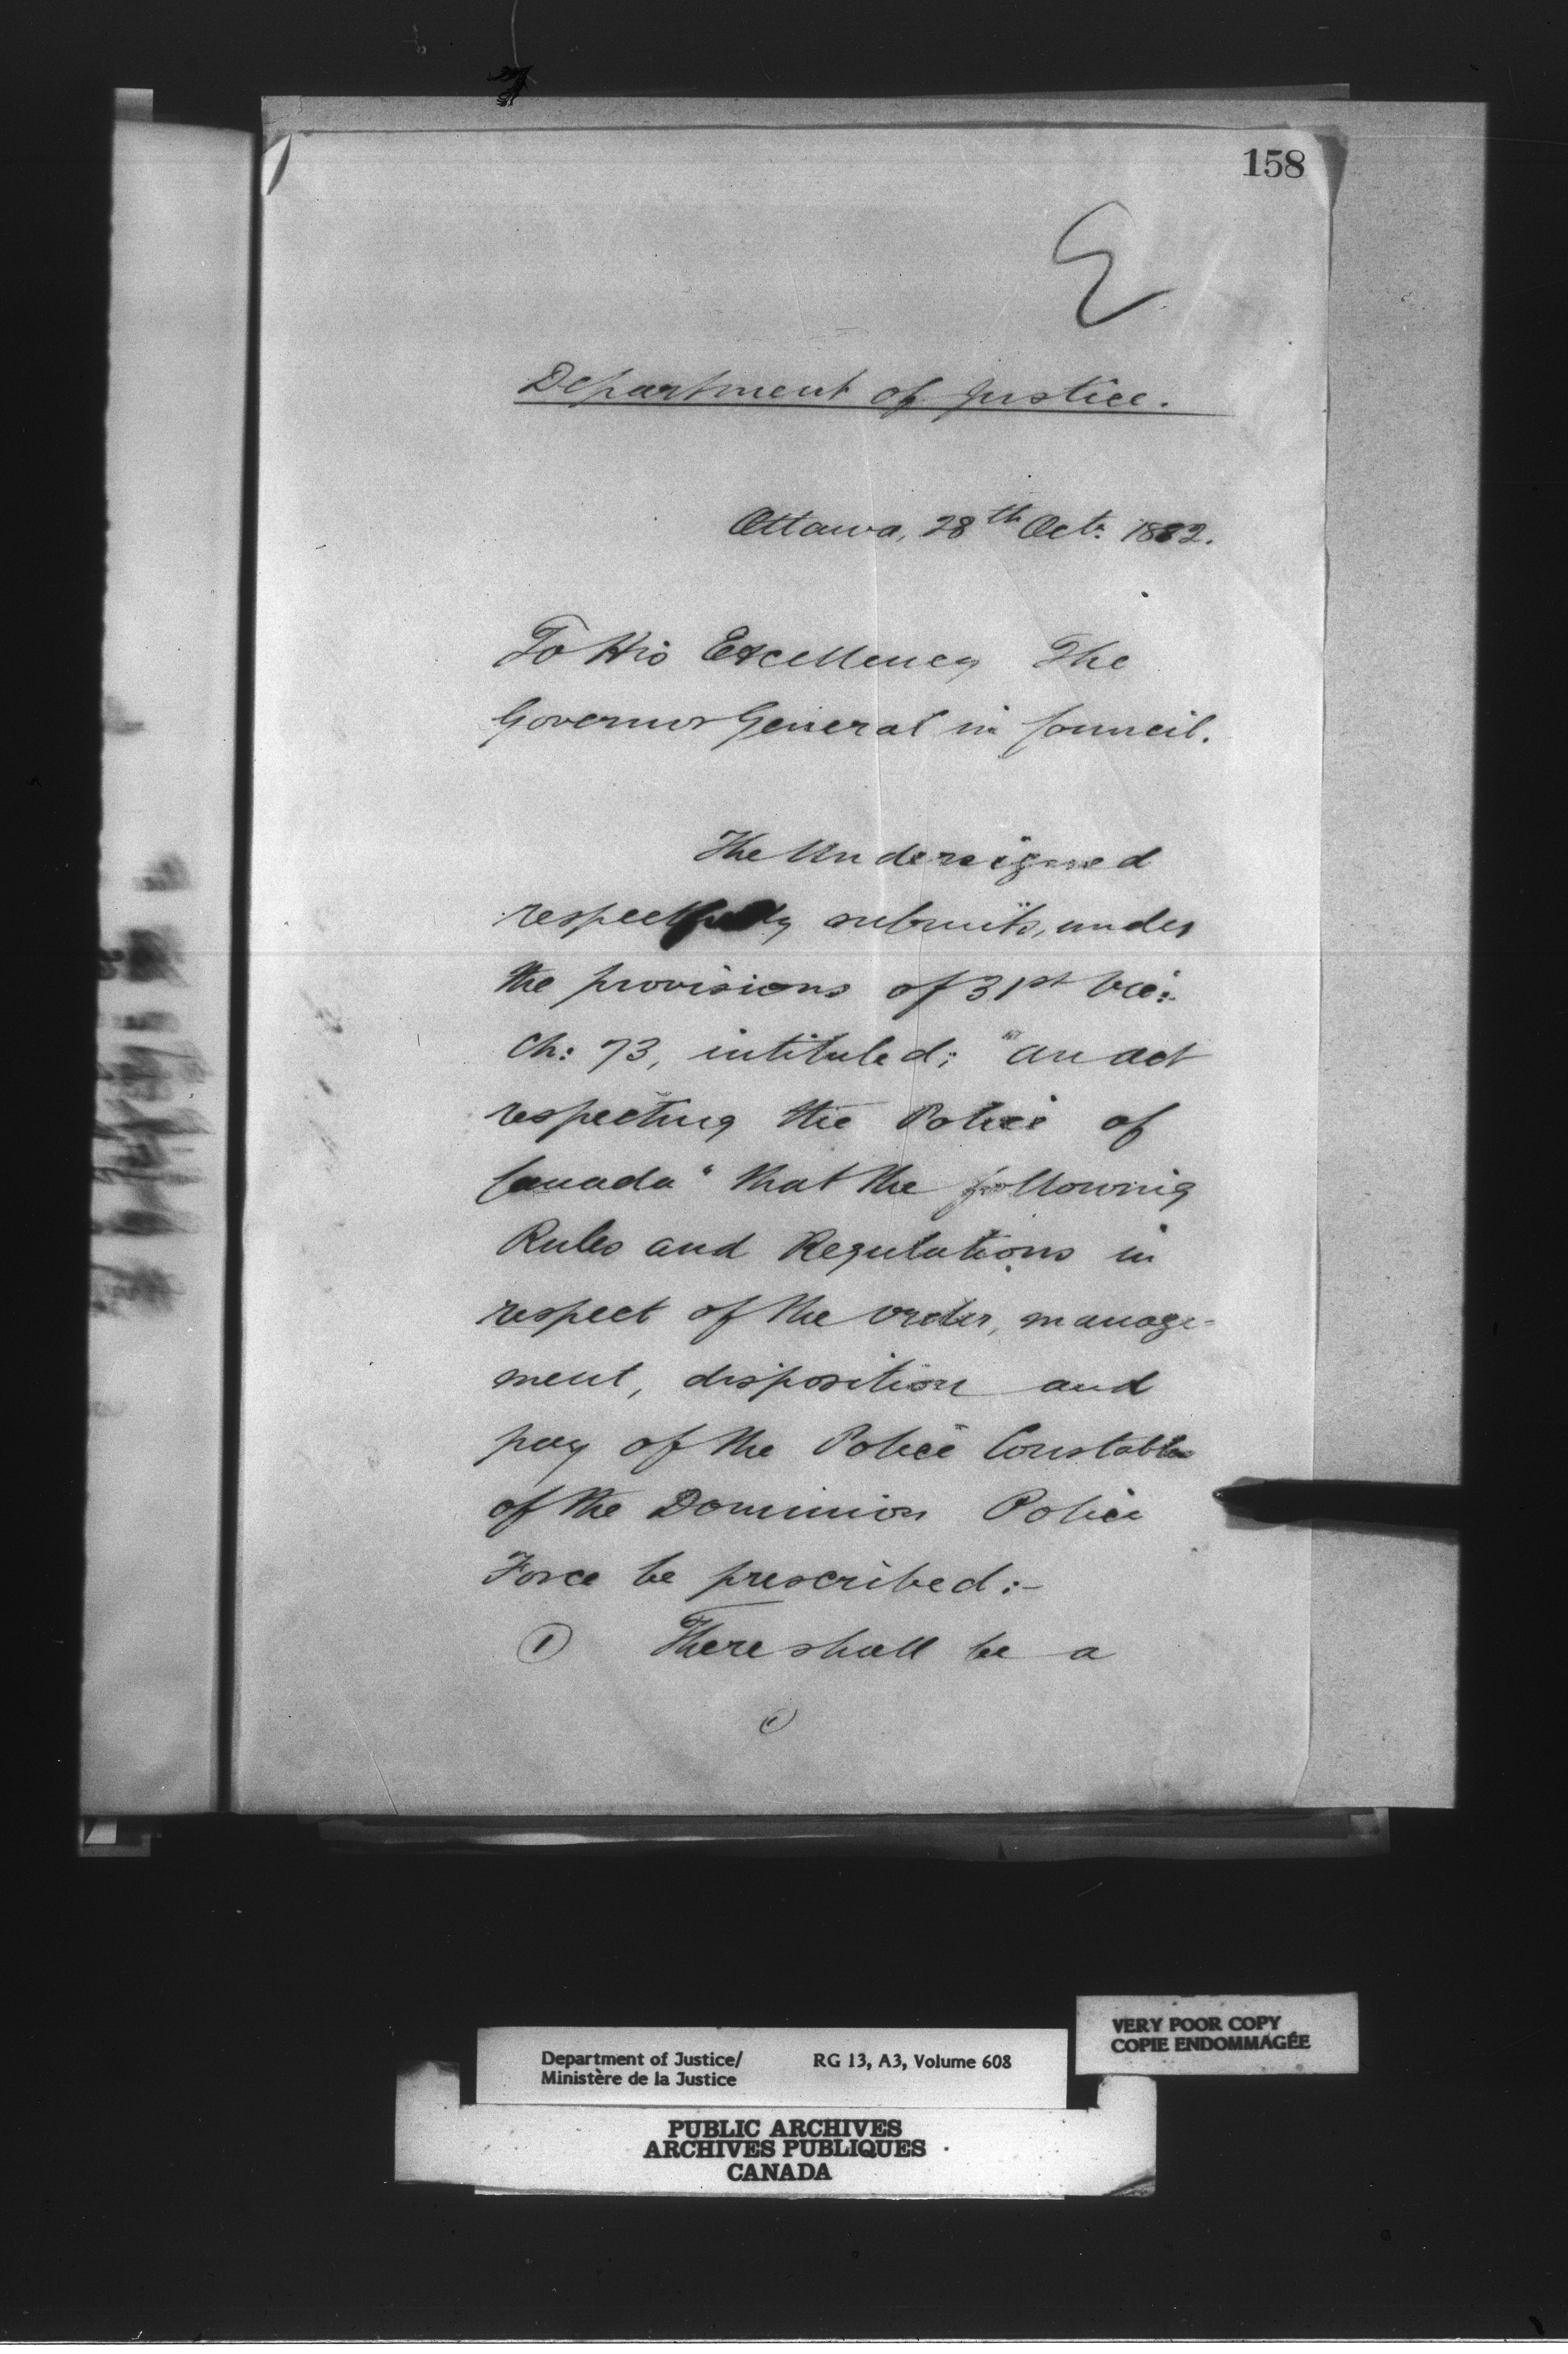 158
Department of Justice.
Ottawa, 28th Oct: 1882.
To His Excellency The
Governor General in Council.
The Undersigned
respectfully submits, under
the provisions of 31st Vic:
Ch: 73, intituled; "An Act
respecting the Police of
Canada" that the following
Rules and Regulations in
respect of the order, manage-
ment, disposition and
pay of the Police Constables
of the Dominion Police
Force be prescribed:-
① There shall be a
VERY POOR COPY
COPIE ENDOMMAGÉE
Department of Justice/ RG 13, A3, Volume 608
Ministère de la Justice
PUBLIC ARCHIVES
ARCHIVES PUBLIQUES
CANADA